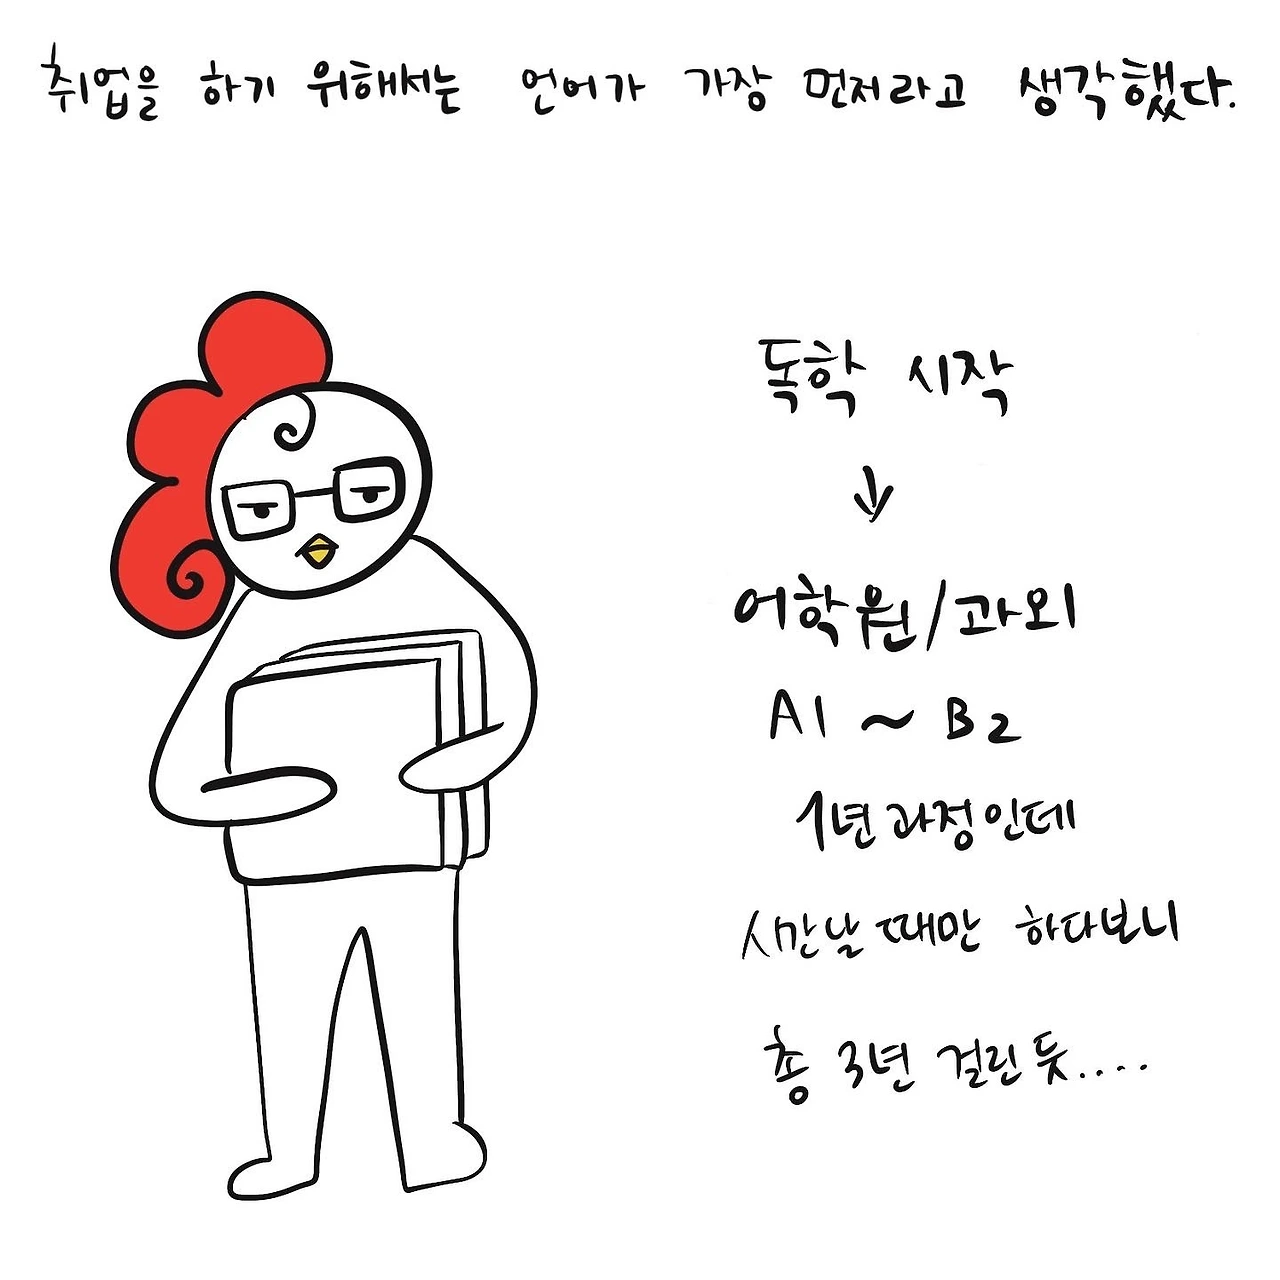 취업을 하기 위해서는 언어가 가장 먼저라고 생각했다.
독학 시작
↓
어학원/과외
A1 ~ B2
1년 과정인데
시간날 때만 하다보니
총 3년 걸린 듯....